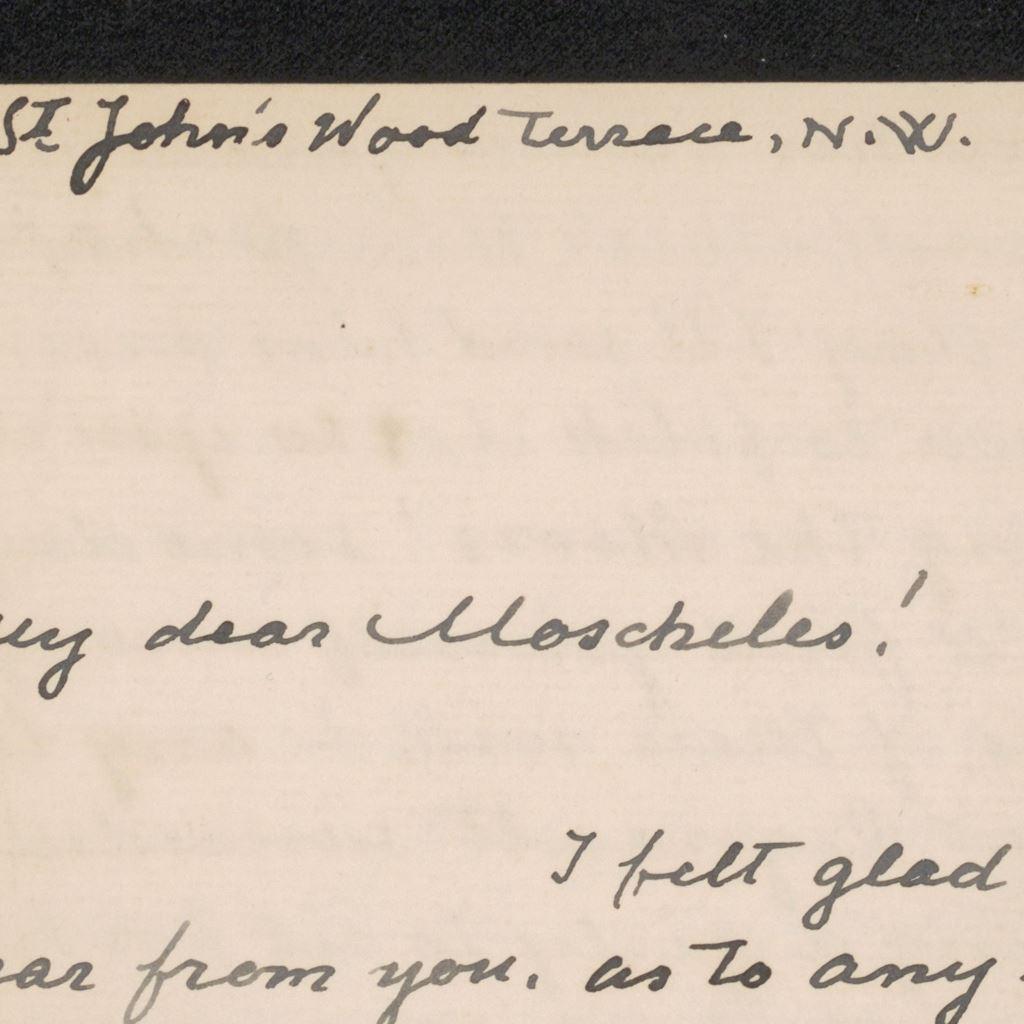 St John's Wood Terrace, N.W.
My dear Moscheles!
I felt glad
ear from you. as to any